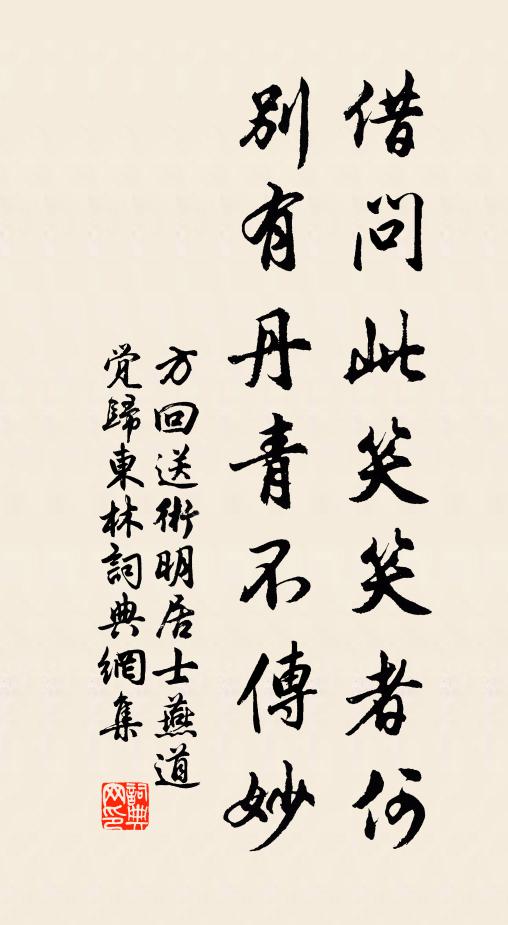 借問此笑笑者何
別有丹青不傳妙
方回送術明居士燕道
覺歸東林詞典網集
詞典
网印